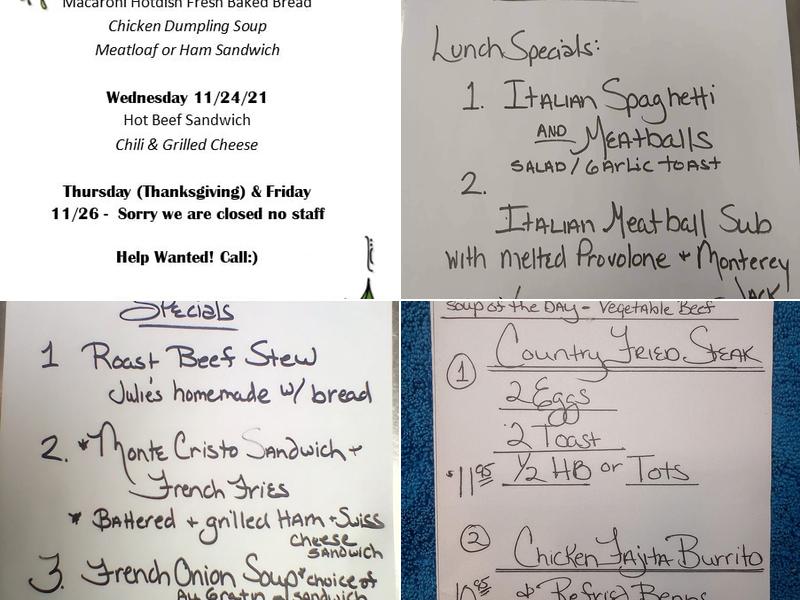 Macaroni Hotdish Fresh Baked Bread
Chicken Dumpling Soup
Meatloaf or Ham Sandwich
Wednesday 11/24/21
Hot Beef Sandwich
Chili & Grilled Cheese
Thursday (Thanksgiving) & Friday
11/26 - Sorry we are closed no staff
Help Wanted! Call:)
Lunch Specials:
1. Italian Spaghetti
AND Meatballs
SALAD / GARLIC TOAST
2.
Italian Meatball Sub
with melted Provolone + Monterey
Jack
Specials
1 Roast Beef Stew
Julie's homemade w/ bread
2. *Monte Cristo Sandwich +
French Fries
* Battered + grilled Ham + Swiss
cheese
sandwich
3. French Onion Soup *choice of
Au Gratin sandwich
Soup of the Day - Vegetable Beef
1 Country Fried Steak
2 Eggs
2 Toast
$11.95 1/2 HB or Tots
2 Chicken Fajita Burrito
10.95 & Refried Beans